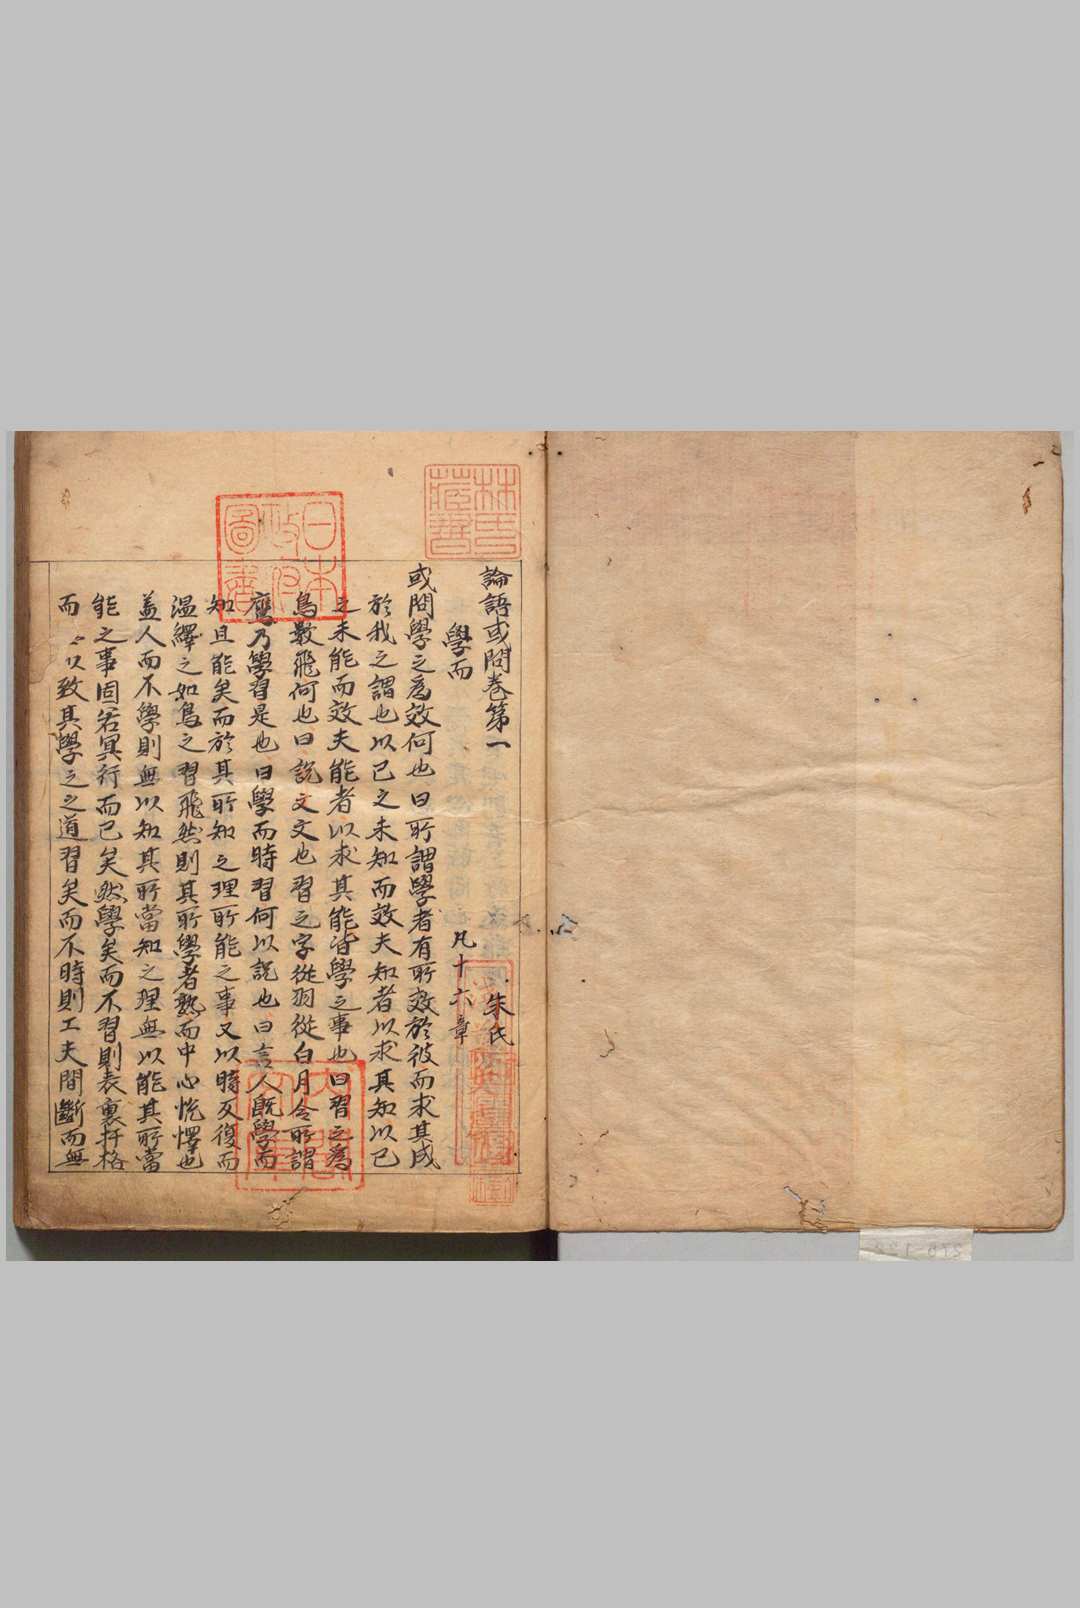 論語或問卷第一 朱氏
學而 凡十六章
或問學之爲效何也曰所謂學者有所效於彼而求其成
於我之謂也以己之未知而效夫知者以求其知以己
之未能而效夫能者以求其能皆學之事也曰習之爲
鳥數飛何也曰說文文也習之字從羽從白月令所謂
鷹乃學習是也曰學而時習何以說也曰言人旣學而
知且能矣而於其所知之理所能之事又以時反復而
温繹之如鳥之習飛然則其所學者熟而中心悅懌也
盖人而不學則無以知其所當知之理無以能其所當
能之事固若冥行而已矣然學矣而不習則表裏扞格
而〻以致其學之之道習矣而不時則工夫間斷而無
林氏藏書
日本政府圖書
內閣文庫